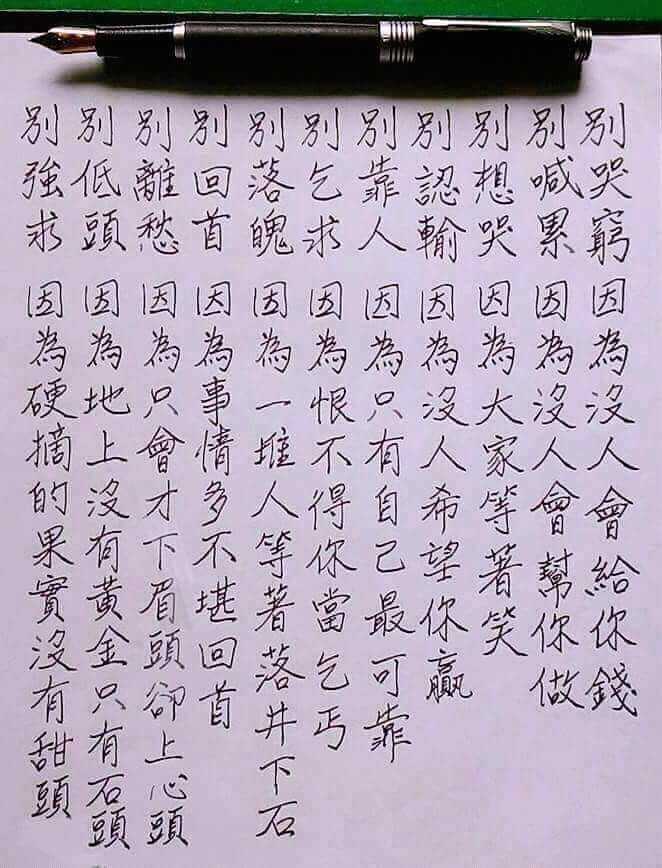 別哭窮 因為沒人會給你錢
別喊累 因為沒人會幫你做
別想哭 因為大家等著笑
別認輸 因為沒人希望你贏
別靠人 因為只有自己最可靠
別乞求 因為恨不得你當乞丐
別落魄 因為一堆人等著落井下石
別回首 因為事情多不堪回首
別離愁 因為只會才下眉頭卻上心頭
別低頭 因為地上沒有黃金只有石頭
別強求 因為硬摘的果實沒有甜頭